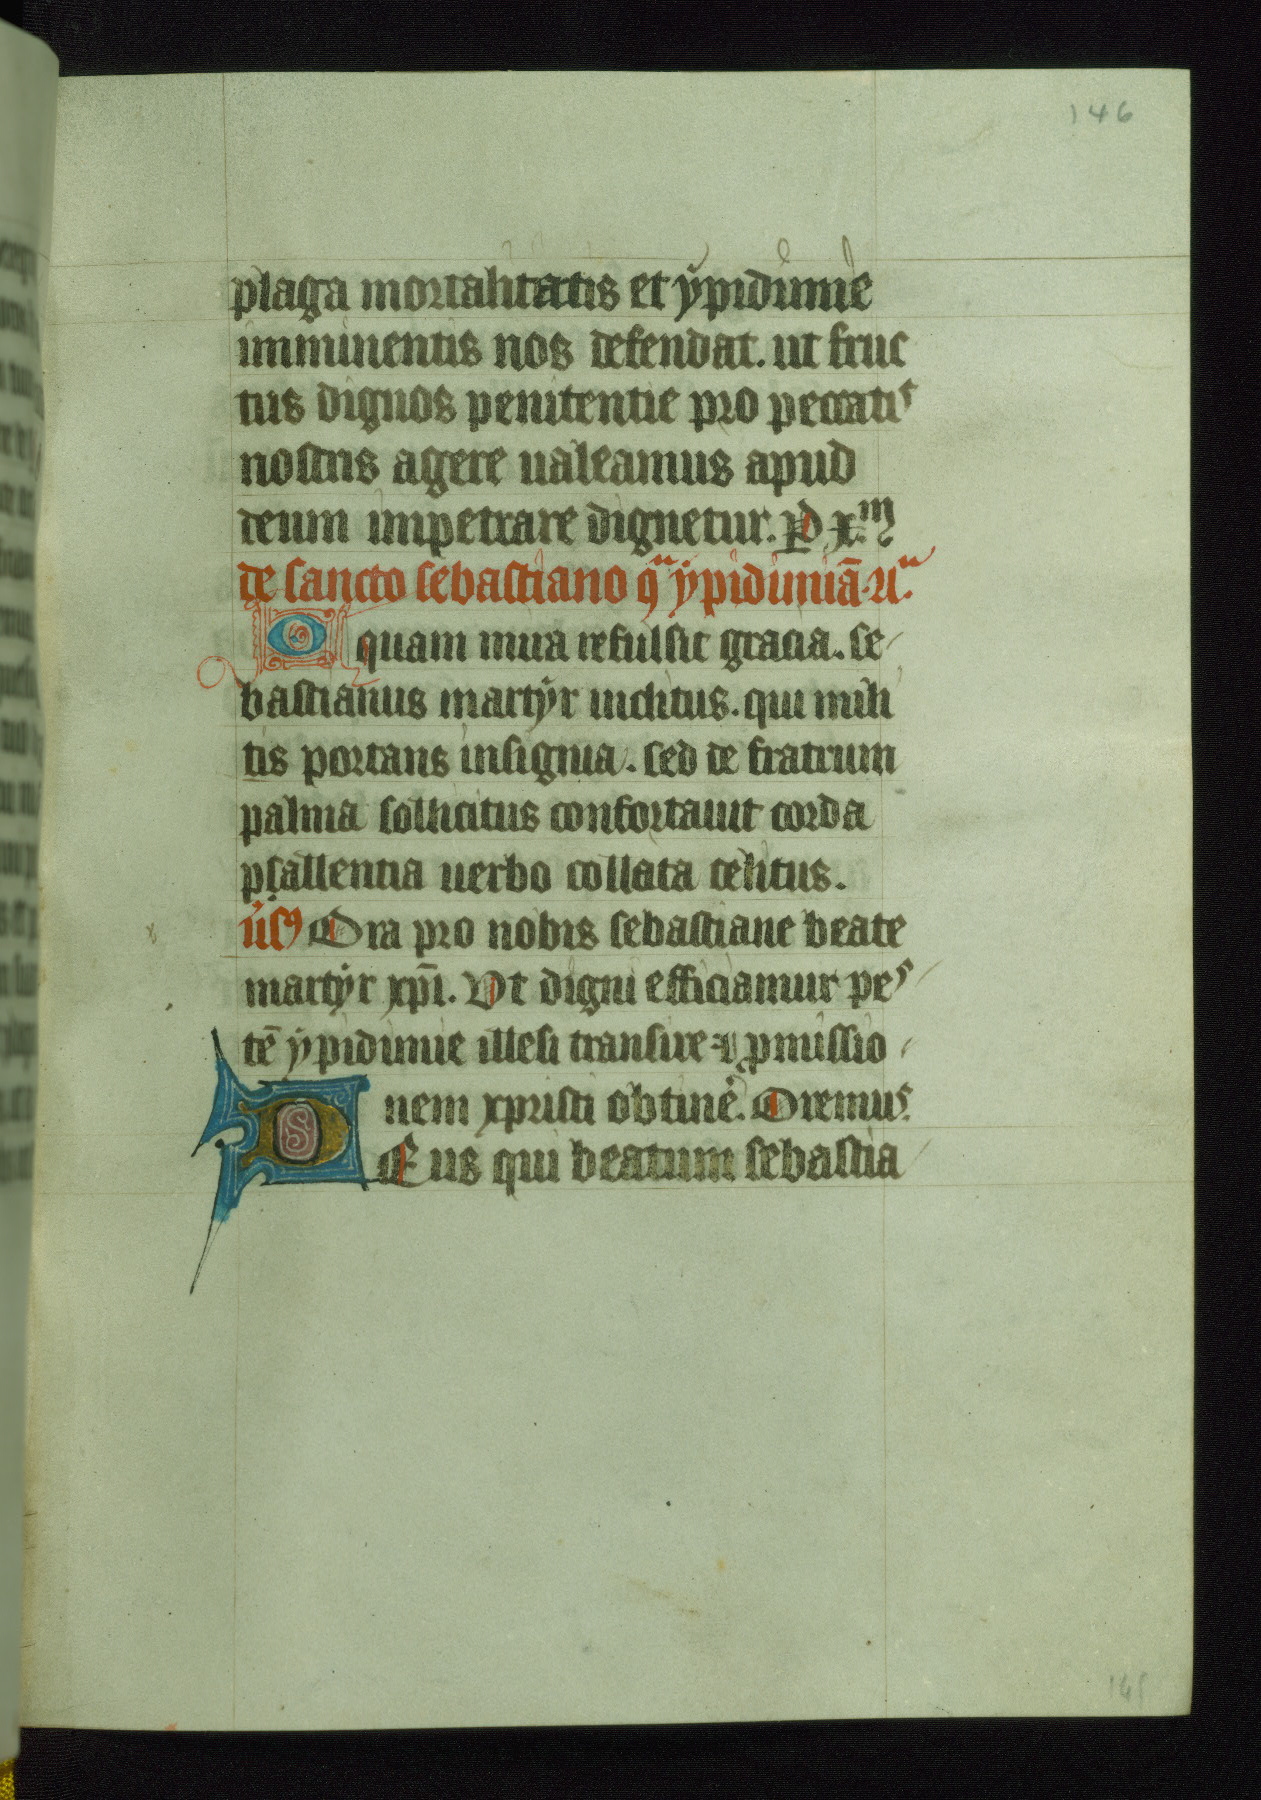 146
plaga mortalitatis et ypidimie
imminentis nos defendat. ut fruc
tus dignos penitentie pro peccatis
nostris agere ualeamus apud
deum impetrare dignetur. P̲d x̅m
de sancto sebastiano q̄ ypidimiā. aͣ.
O quam mira refulsit gracia. se
bastianus martyr inclitus. qui mili
tis portans insignia. sed de fratrum
palma sollicitus confortauit corda
psallentia uerbo collata celitus.
ūs9 Ora pro nobis sebastiane beate
martyr xp̄i. Vt digni efficiamur pes
tē ypidimie illesi transire ⁊ ꝓmissio
nem xpristi obtinē. Oremus.
DEus qui beatum sebastia
145